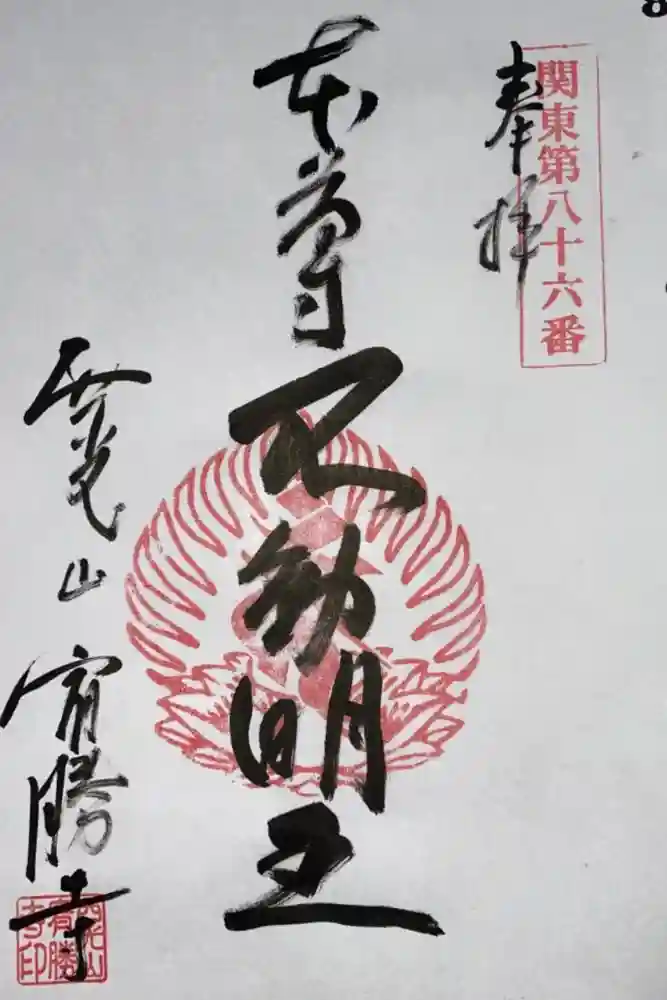 関東第八十六番
奉拝
本尊
不動明王
西光山
宥勝寺
宥勝
寺印